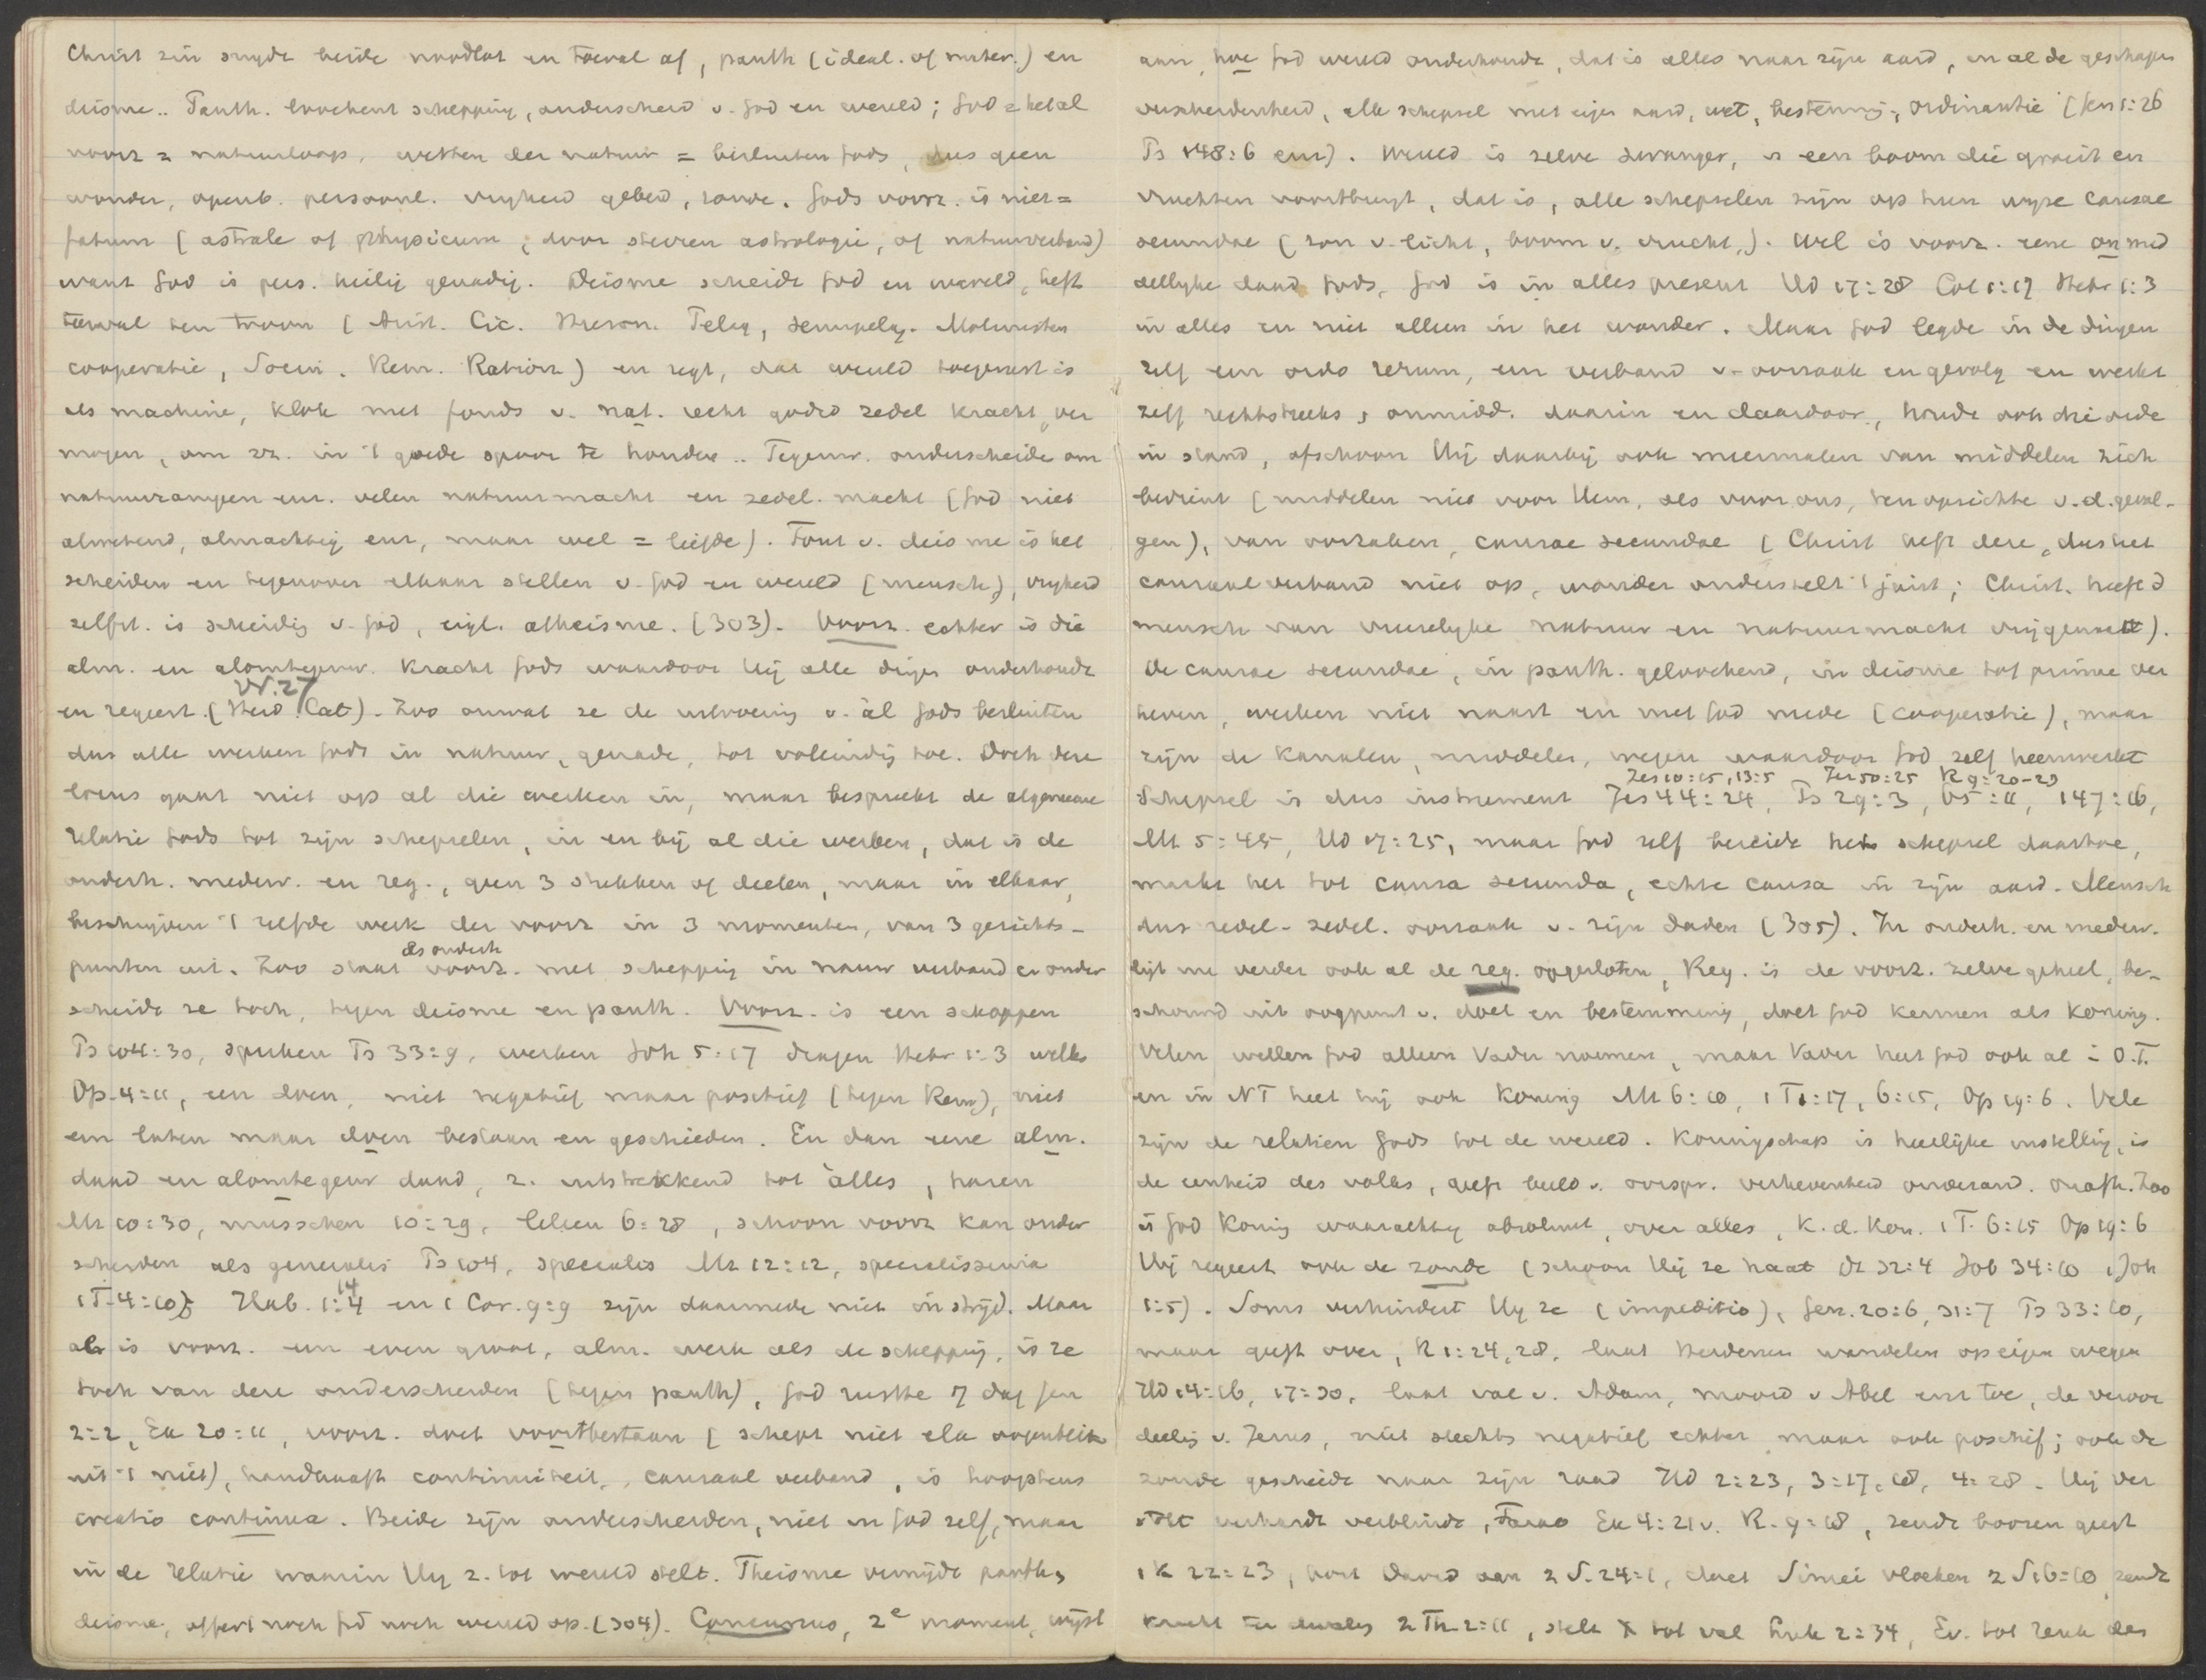 Christ zin snydt beide noodlot en toeval af, panth (ideal. of mater.) en
deisme.. Panth. loochent schepping, onderscheid v. God en wereld; God = het al
voorz = natuurloop, wetten der natuur = besluiten Gods, dus geen
wonder, openb. persoonl. vryheid gebed, zonde. Gods voorz. is niet =
fatum (astrale of physicum, door sterren astrologie, of natuurverband)
want God is pers. heilig genadig. Deisme scheidt God en wereld, heft
toeval ten troon (Arist. Cic. Hieron. Pelag, semipelag. Molinisten
cooperatie, Socin. Rem. Ration) en zegt, dat wereld toegerust is
als machine, klok met fonds v. nat. recht godsd zedel kracht, ver
mogen, om zz. in 't goede spoor te houden .. Tegenw. onderscheidt om
natuurrampen enz. velen natuurmacht en zedel. macht (God niet
alwetend, almachtig enz, maar wel = liefde). Fout v. deisme is het
scheiden en tegenover elkaar stellen v. God en wereld (mensch), vryheid
zelfst. is scheidig v. God, eigl. atheisme. (303). Voorz. echter is die
alm. en alomtegenw. kracht Gods waardoor Hij alle dingen onderhoudt
en regeert. (Heid. Cat) vr. 27. Zoo omvat ze de uitvoering v. àl Gods besluiten
dus alle werken Gods in natuur, genade, tot voleindig toe. Doch deze
locus gaat niet op al die werken in, maar bespreekt de algemeene
relatie Gods tot zijn schepselen, in en bij al die werken, dat is de
onderh. medew. en reg., geen 3 stukken of deelen, maar in elkaar,
beschrijven 't zelfde werk der voorz in 3 momenten, van 3 gezichts-
punten uit. Zoo staat als onderh voorz. met schepping in nauw verband en onder
scheidt ze toch, tegen deisme en panth. Voorz. is een scheppen
Ps 104:30, spreken Ps 33:9, werken Joh 5:17 dragen Hebr 1:3 willen
Op. 4:11, een doen, niet negatief maar positief (tegen Rem), niet
een laten maar doen bestaan en geschieden. En dan eene alm.
daad en alomtegenw daad, z. uitstrekkend tot àlles, haren
Mt 10:30, musschen 10:29, leliën 6:28, schoon voorz kan onder
scheiden als generalis Ps 104, specialis Mt 12:12, specialissima
1 T. 4:10; Hab. 1:14 en 1 Cor. 9:9 zijn daarmede niet in strijd. Maar
al is voorz. een even groot, alm. werk als de schepping, is ze
toch van deze onderscheiden (tegen panth), God rustte 7 dag Gen
2:2, Ex 20:11, voorz. doet voortbestaan (schept niet elk oogenblik
uit 't niet), handhaaft continuiteit, causaal verband, is hoogstens
creatio continua. Beide zijn onderscheiden, niet in God zelf, maar
in de relatie waarin Hy z. tot wereld stelt. Theisme vermijdt panth,
deisme, offert noch God noch wereld op. (304). Concursus, 2e moment, wyst
aan, hoe God wereld onderhoudt, dat is alles naar zijn aard, in al de geschapen
verscheidenheid, elk schepsel met eigen aard, wet, bestemmig, ordinantie (Gen 1:26
Ps 148:6 enz). Wereld is zelve zwanger, is een boom die groeit en
vruchten voortbrengt, dat is, alle schepselen zijn op hun wyze causae
secundae (zon v. licht, boom v. vrucht,). Wel is voorz. eene onmid
dellyke daad Gods, God is in alles present Hd 17:28 Col 1:17 Hebr 1:3
in alles en niet alleen in het wonder. Maar God legde in de dingen
zelf een ordo rerum, een verband v. oorzaak en gevolg en werkt
zelf rechtstreeks, onmidd. daarin en daardoor, houdt ook die orde
in stand, ofschoon Hij daarbij ook meermalen van middelen zich
bedient (middelen niet voor Hem, als voor ons, ten opzichte v. d. gevol-
gen), van oorzaken, causae secundae (Christ heft deze, dus het
causaal verband niet op, wonder onderstelt 't juist; Christ. heeft d
mensch van vreeselyke natuur en natuurmacht vrijgemaakt).
De causae secundae, in panth. geloochend, in deisme tot primae ver
heven, werken niet naast en met God mede (cooperatie), maar
zijn de kanalen, middelen, wegen waardoor God zelf heenwerkt
Jes 10:15, 13:5 Jer 50:25 R 9:20-23
Schepsel is dus instrument Jes 44:24, Ps 29:3, 65:11, 147:16,
Mt 5:45, Hd 17:25, maar God zelf bereidt het schepsel daartoe,
maakt het tot causa secunda, echte causa in zijn aard. Mensch
dus redel- zedel. oorzaak v. zijn daden (305). In onderh. en medew.
ligt nu verder ook al de reg. opgesloten, Reg. is de voorz. zelve geheel, be-
schouwd uit oogpunt v. doel en bestemming, doet God kennen als Koning.
Velen willen God alleen Vader noemen, maar Vader heet God ook al i O.T.
en in NT heet hij ook Koning Mt 6:10, 1 T 1:17, 6:15, Op 19:6. Vele
zijn de relatien Gods tot de wereld. Koningschap is heerlijke instellig, is
de eenheid des volks, geeft beeld v. oorspr. verhevenheid onderand. onafh. Zoo
is God Konig waarachtig absoluut, over alles, K. d. Kon. 1 T. 6:15 Op 19:6
Hij regeert ook de zonde (schoon Hij ze haat Dt 32:4 Job 34:10 1 Joh
1:5). Soms verhindert Hy ze (impeditio), Gen. 20:6, 31:7 Ps 33:10,
maar geeft over, R 1:24, 28, laat Heidenen wandelen op eigen wegen
Hd 14:16, 17:30, laat val v. Adam, moord v Abel enz toe, de veroor
deelig v. Jezus, niet slechts negatief echter maar ook positief; ook de
zonde geschiedt naar zijn raad Hd 2:23, 3:17, 18, 4:28. Hij ver
stokt verhardt verblindt, Farao Ex 4:21 v. R. 9:18, zendt boozen geest
1 K 22:23, port David aan 2 S. 24:1, doet Simei vloeken 2 S 16:10, zendt
kracht der dwalig 2 Th. 2:11, stelt X tot val Luk 2:34, Ev. tot reuk des